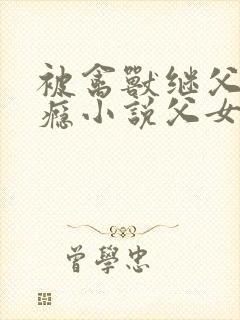 被禽獸继父
瘾小説父女
曾學忠